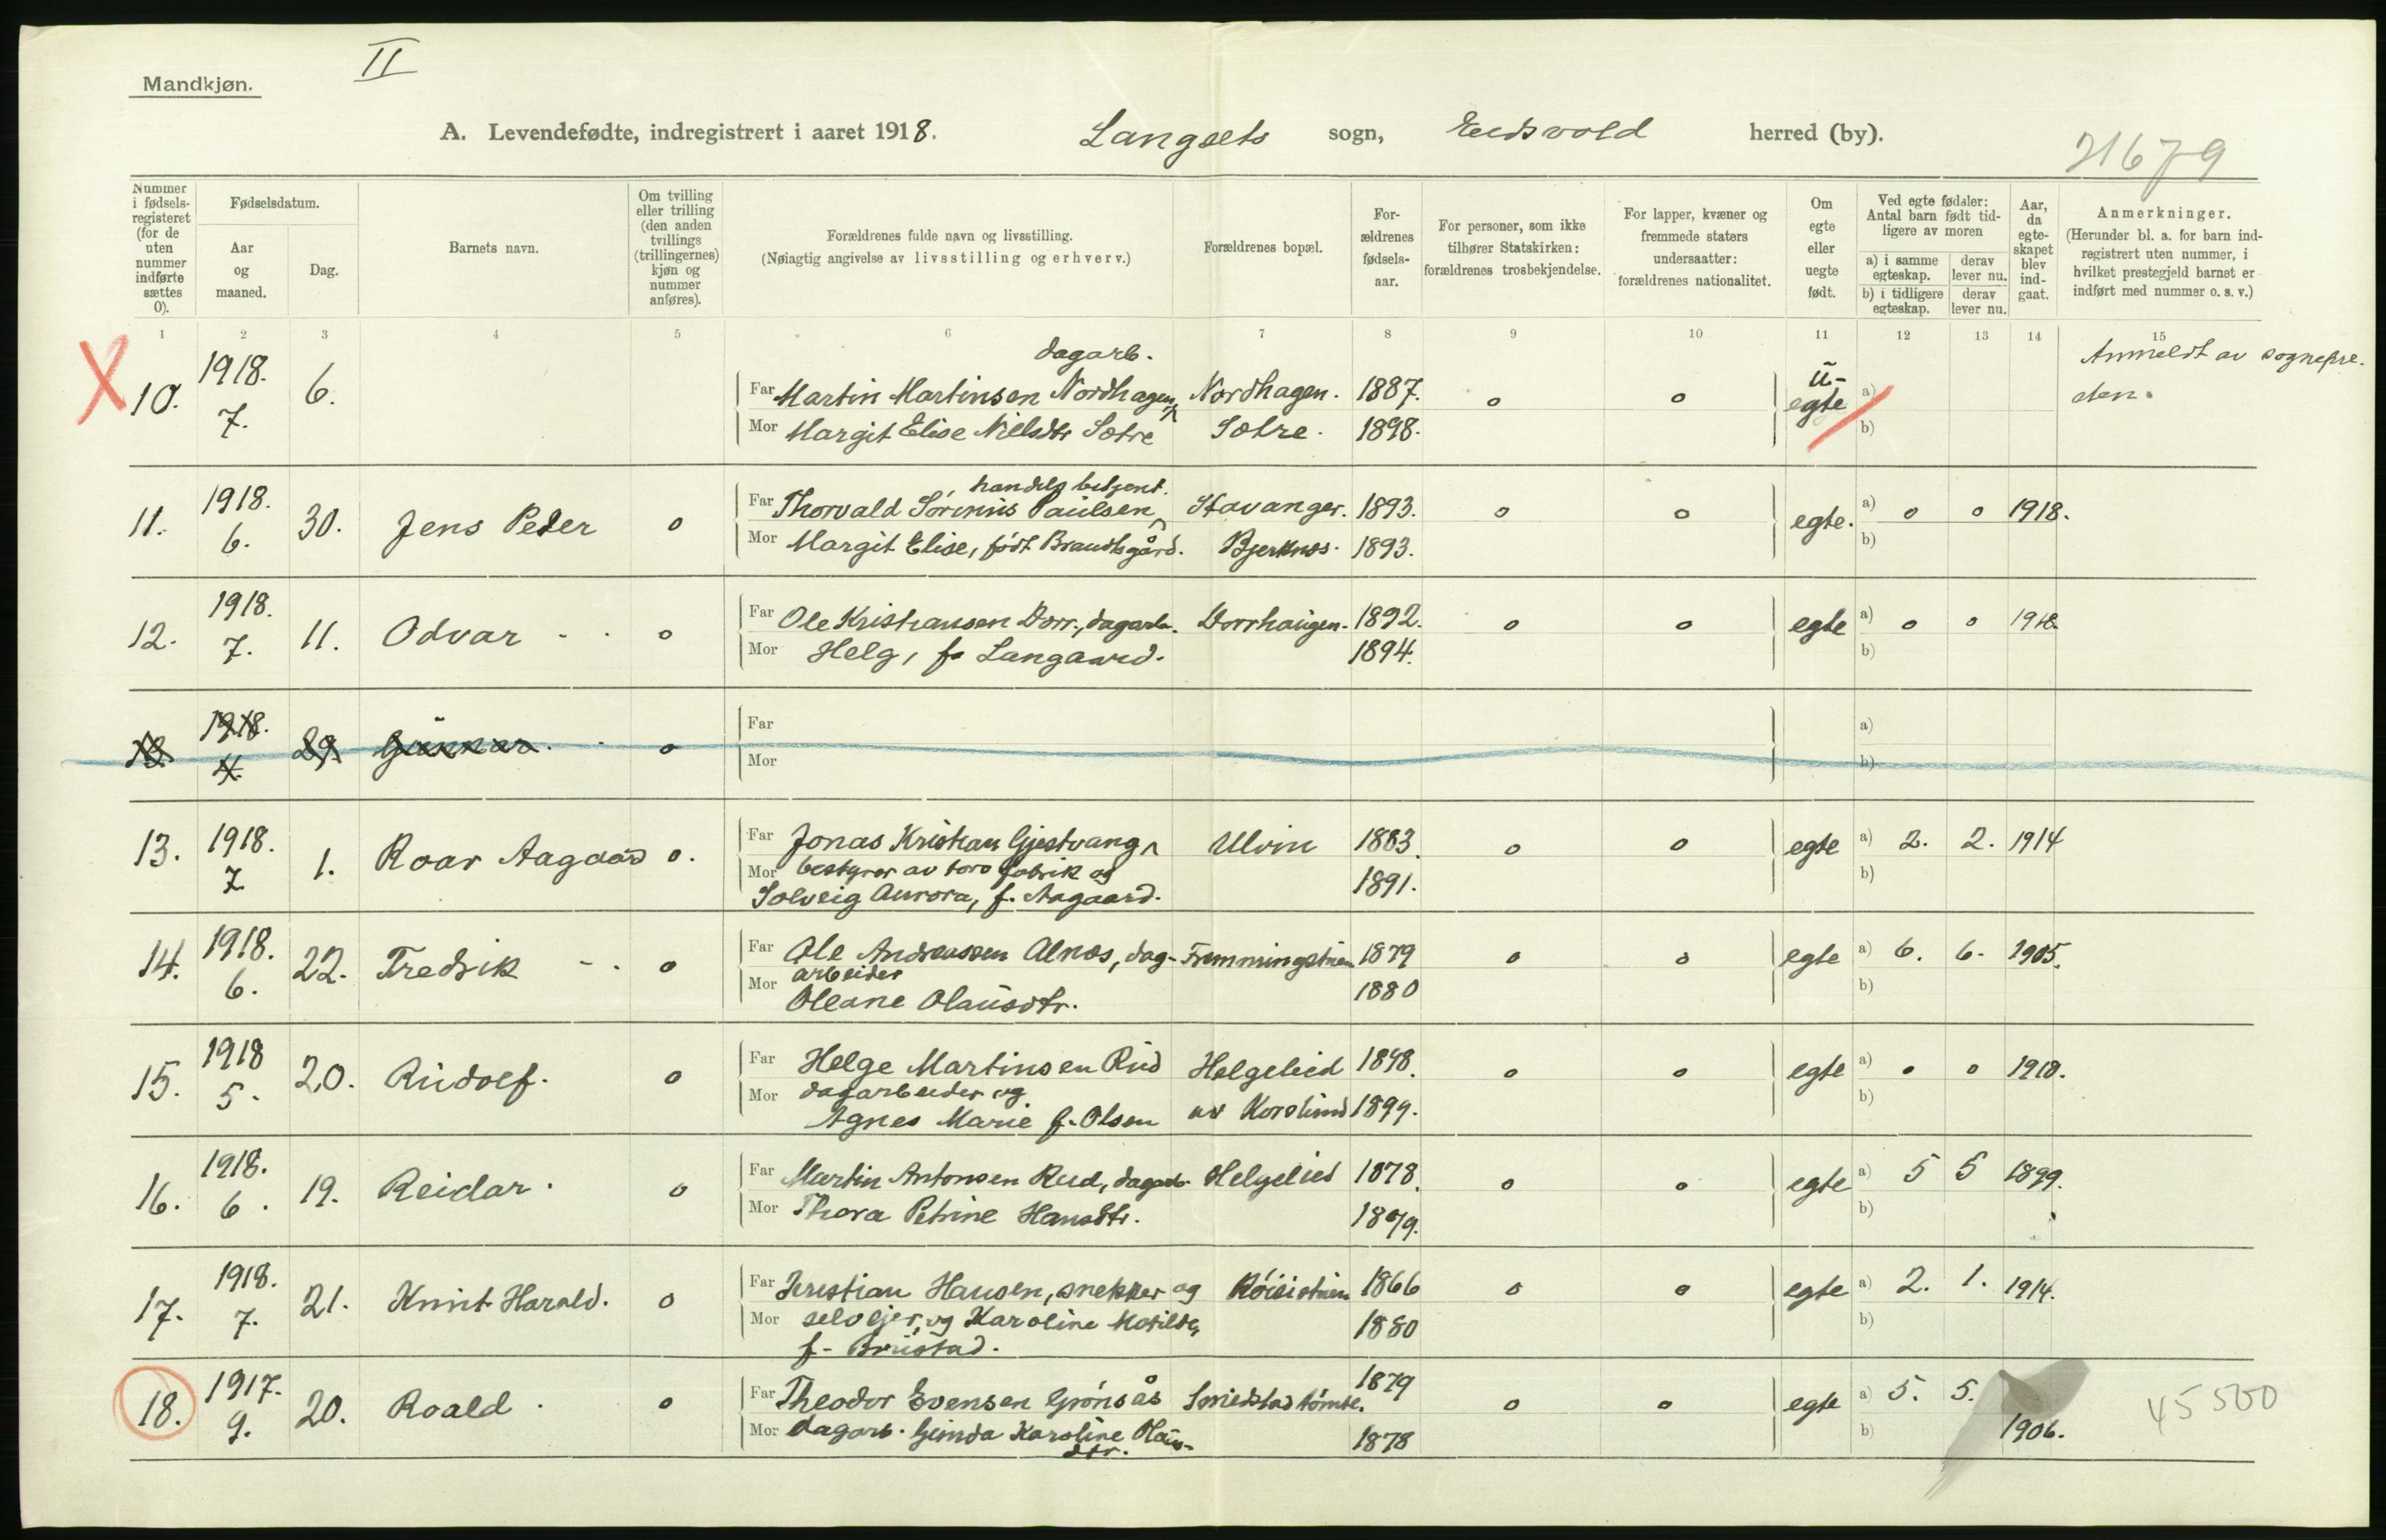 II
Mandkjøn.
A. Levendefødte, indregistrert i aaret 1918. Langsets sogn, Eidsvold herred (by).
21679
Nummer i fødselsregisteret (for de uten nummer indførte sættes 0).
Fødselsdatum.
Aar og maaned.
Dag.
Barnets navn.
Om tvilling eller trilling (den anden tvillings (trillingernes) kjøn og nummer anføres).
Forældrenes fulde navn og livsstilling.
(Nøiagtig angivelse av livsstilling og erhverv.)
Forældrenes bopæl.
Forældrenes fødselsaar.
For personer, som ikke tilhører Statskirken: forældrenes trosbekjendelse.
For lapper, kvæner og fremmede staters undersaatter: forældrenes nationalitet.
Om egte eller uegte født.
Ved egte fødsler: Antal barn født tidligere av moren
a) i samme egteskap. derav lever nu.
b) i tidligere egteskap. derav lever nu.
Aar, da egteskapet blev indgaat.
Anmerkninger.
(Herunder bl. a. for barn indregistrert uten nummer, i hvilket prestegjeld barnet er indført med nummer o. s. v.)
1 2 3 4 5 6 7 8 9 10 11 12 13 14 15
X 10. 1918. 7. 6. dagarb.
Far Martin Martinsen Nordhagen, Nordhagen. 1887. 0 0 u-egte a) Anmeldt av sognepre-
Mor Margit Elise Nielsdtr Sætre Sætre. 1898. b) sten.
11. 1918. 6. 30. Jens Peder 0 handelsbetjent.
Far Thorvald Sörinius Paulsen Stavanger. 1893. 0 0 egte. a) 0 0 1918.
Mor Margit Elise, født Brandtsgård. Bjerknes. 1893. b)
12. 1918. 7. 11. Odvar 0
Far Ole Kristiansen Dorr, dagarb. Dorrhaugen. 1892. 0 0 egte a) 0 0 1918.
Mor Helg, f. Langaard. 1894. b)
13. 1918. 4. 29. Gunnar. 0
Far a)
Mor b)
13. 1918. 7. 1. Roar Aagaard 0.
Far Jonas Kristian Gjestvang Ulvin 1883. 0 0 egte a) 2. 2. 1914
Mor bestyrer av torvfabrik og 1891. b)
Solveig Aurora, f. Aagaard.
14. 1918. 6. 22. Fredrik 0
Far Ole Andreassen Alnæs, dag- 1879 0 0 egte a) 6. 6. 1905.
Mor arbeider 1880 b)
Oleane Olausdtr.
15. 1918 5. 20. Rudolf. 0
Far Helge Martinsen Rud Helgeleid 1898. 0 0 egte a) 0 0 1918.
Mor dagarbeider og av Korslund 1899. b)
Agnes Marie f. Olsen
16. 1918. 6. 19. Reidar. 0
Far Martin Antonsen Rud, dagarb. Helgeleid 1878. 0 0 egte a) 5 5 1899.
Mor Thora Petrine Hansdtr. 1879. b)
17. 1918. 7. 21. Knut Harald. 0
Far Kristian Hansen, snekker og 1866 0 0 egte a) 2. 1. 1914.
Mor selveier, og Karoline Matilde, 1880 b)
f. Brustad.
18. 1917. 9. 20. Roald. 0
Far Theodor Evensen Grönsås Smedstadtömte. 1879 0 0 egte a) 5. 5. 45500
Mor dagarb. Ginda Karoline Olaus- 1878 b) 1906.
dtr.